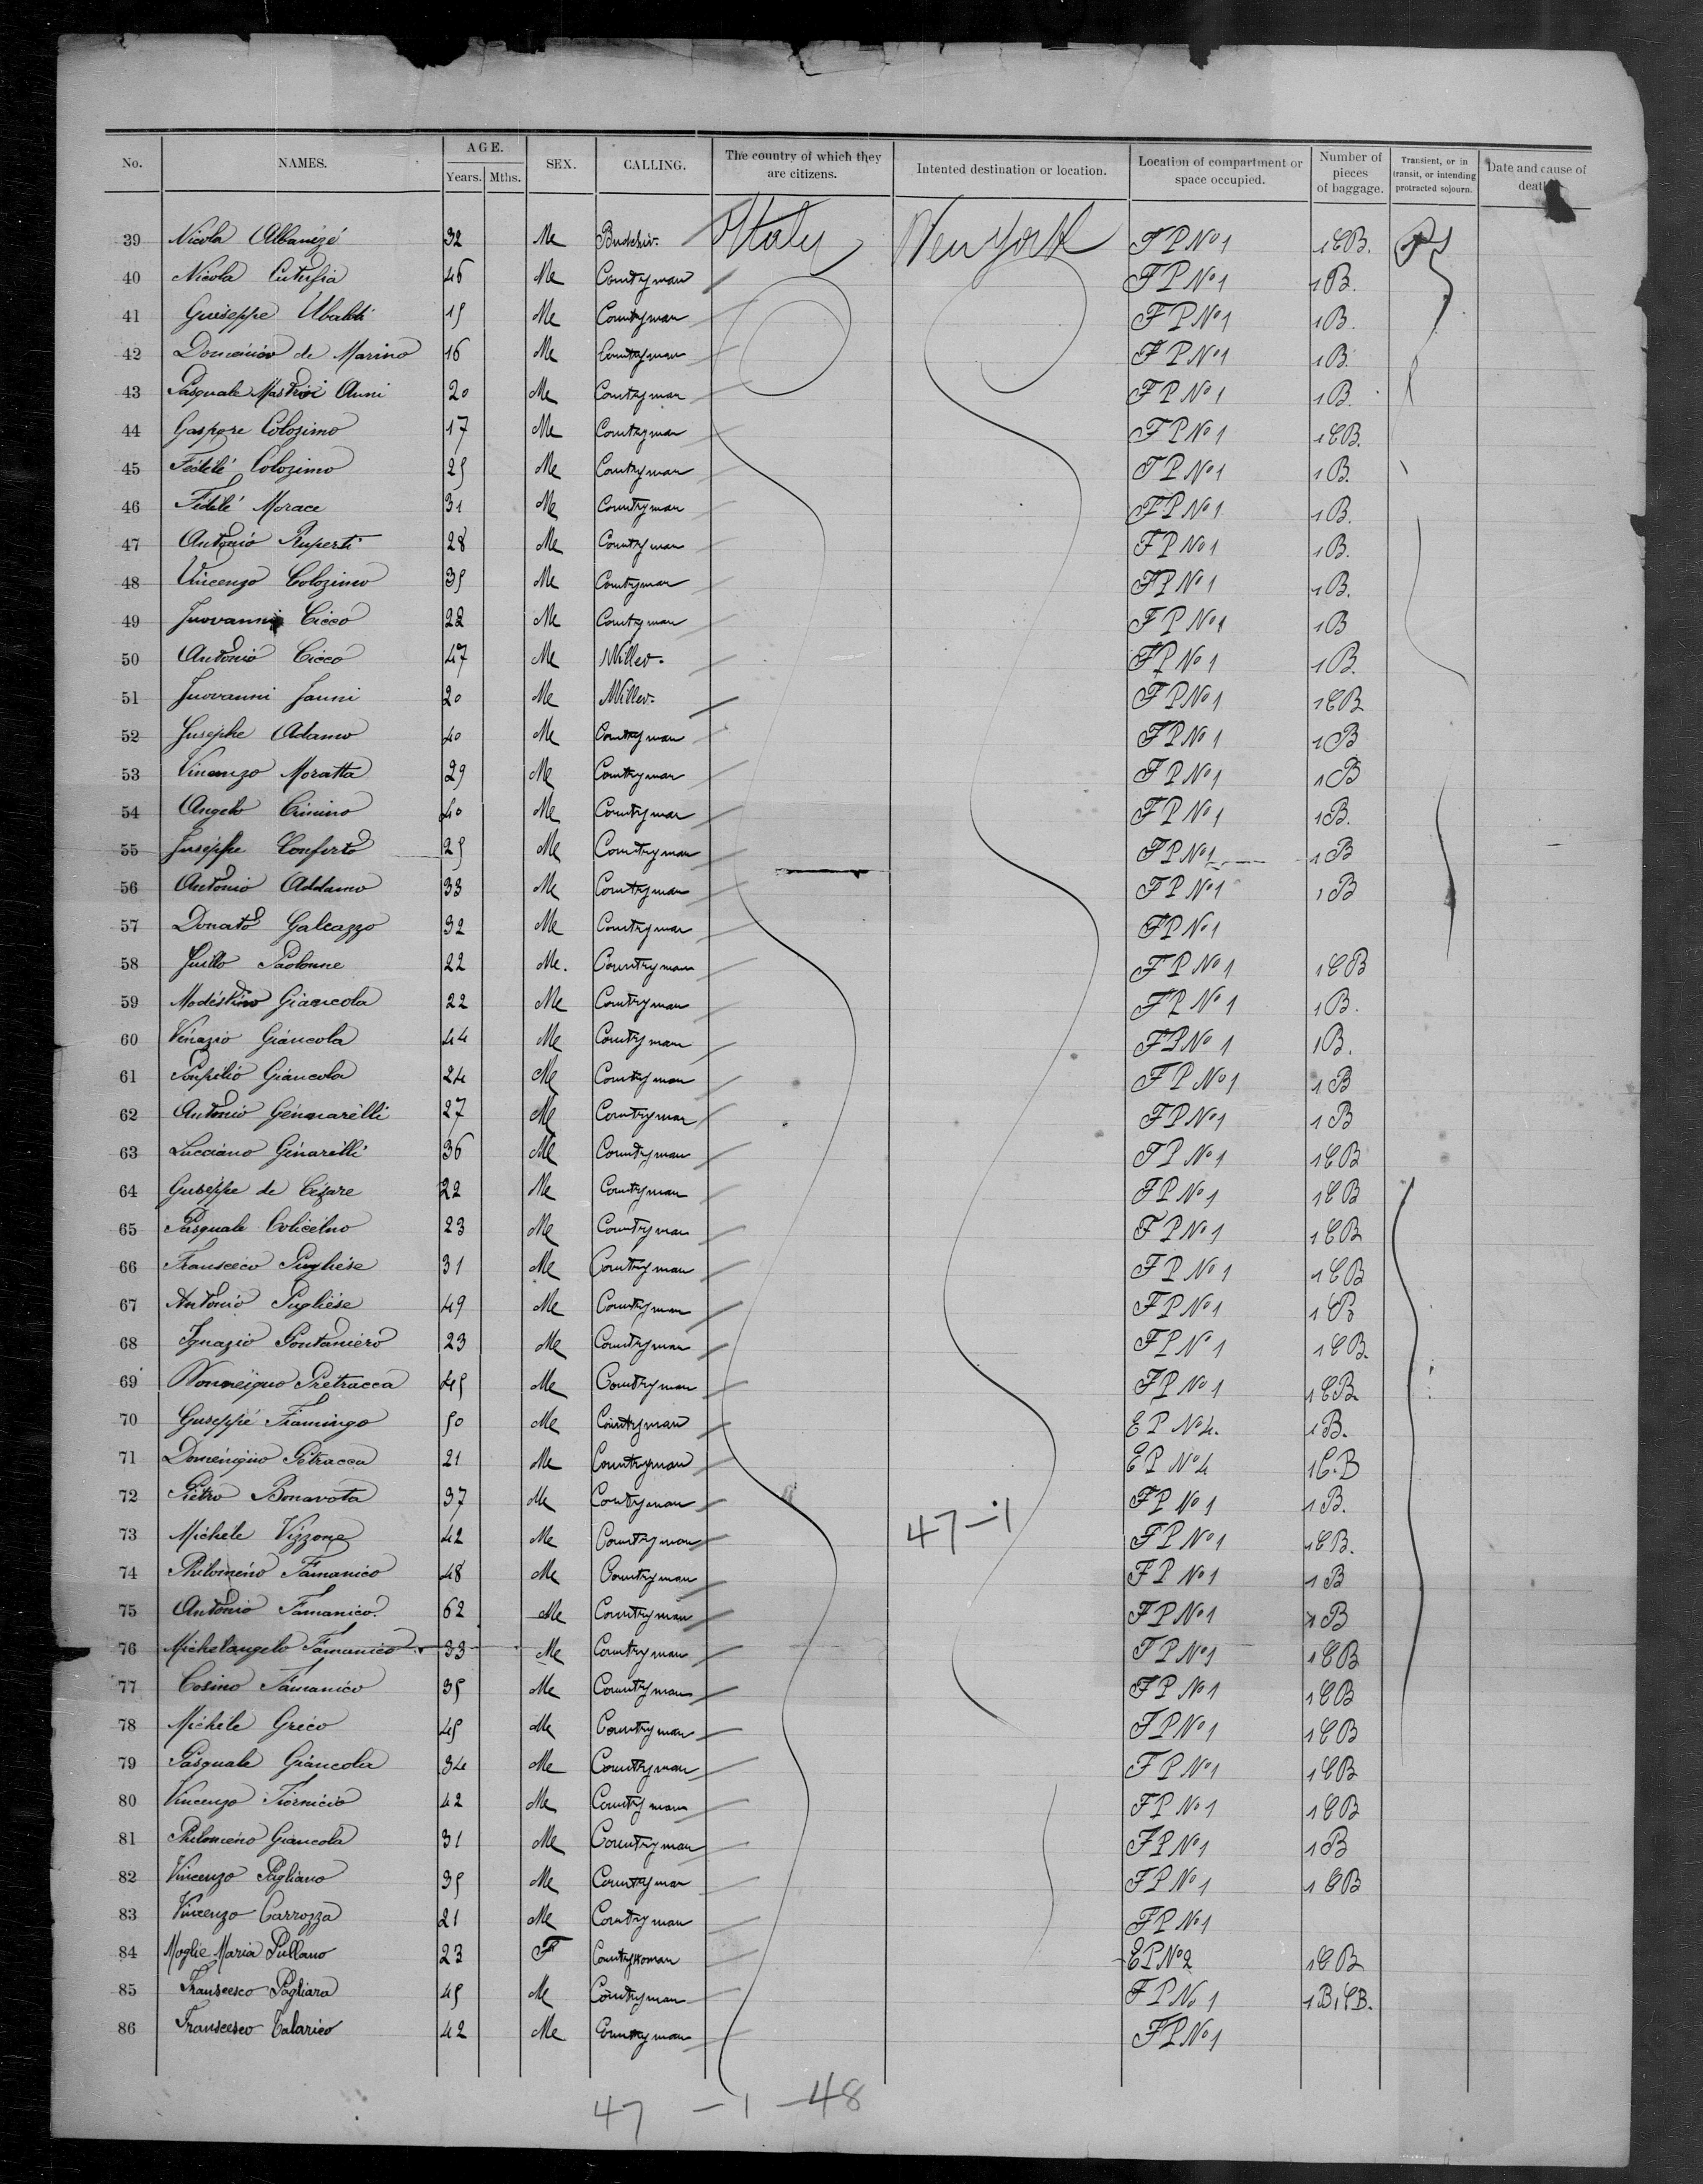 No. NAMES. AGE. Years. Mths. SEX. CALLING. The country of which they are citizens. Intented destination or location. Location of compartment or space occupied. Number of pieces of baggage. Transient, or in transit, or intending protracted sojourn. Date and cause of death
39 Nicola Albanizé 32 Me Italy New York F P No 1 1 CB.
40 Nicola 46 Me Countryman F P No 1 1 B.
41 Guiseppe Ubaldi 19 Me Countryman F P No 1 1 B.
42 Domenico de Marino 16 Me Countryman F P No 1 1 B.
43 Pasquale Mastroi Anni 20 Me Countryman F P No 1 1 B.
44 Gaspare Colozimo 17 Me Countryman F P No 1 1 CB.
45 Fédélé Colozimo 29 Me Countryman F P No 1 1 B.
46 Fidélé Morace 31 Me Countryman F P No 1 1 B.
47 Antonio Ruperti 28 Me Countryman F P No 1 1 B.
48 Vincenzo Colozimo 39 Me Countryman F P No 1 1 B.
49 Juovanni Cicco 22 Me Countryman F P No 1 1 B
50 Antonio Cicco 47 Me Miller. F P No 1 1 B.
51 Juovanni Janni 20 Me Miller. F P No 1 1 CB
52 Jusephe Adamo 40 Me Countryman F P No 1 1 B
53 Vincenzo Moratta 29 Me Countryman F P No 1 1 B
54 Angelo Cimino 40 Me Countryman F P No 1 1 B.
55 Juseppe Conforto 29 Me Countryman F P No 1 1 B
56 Antonio Addamo 33 Me Countryman F P No 1 1 B
57 Donato Galeazzo 32 Me Countryman F P No 1
58 Juillo Paolonne 22 Me. Countryman F P No 1 1 CB
59 Modéstino Giancola 22 Me Countryman F P No 1 1 B.
60 Vinazio Giancola 44 Me Countryman F P No 1 1 B.
61 Ponpilio Giancola 24 Me Countryman F P No 1 1 B
62 Antonio Génnarélli 27 Me Countryman F P No 1 1 B
63 Lucciano Génarilli 36 Me Countryman F P No 1 1 CB
64 Guseppe de Césare 22 Me Countryman F P No 1 1 CB
65 Pasquale 23 Me Countryman F P No 1 1 CB
66 Franscéco Pugliése 31 Me Countryman F P No 1 1 CB
67 Antonio Pugliése 49 Me Countryman F P No 1 1 B
68 Ignazio Pontaniero 23 Me Countryman F P No 1 1 CB.
69 Piétracca 49 Me Countryman F P No 1 1 CB
70 Guseppé Framingo 50 Me Countryman E P No 4. 1 B.
71 Pétracca 21 Me Countryman E P No 4 1 C.B
72 Piétro Bonavota 37 Me Countryman F P No 1 1 B.
73 Michéle Vizzone 42 Me Countryman 47-1 F P No 1 1 CB.
74 Philoméno Famanico 48 Me Countryman F P No 1 1 B
75 Antonio Famanico. 62 Me Countryman F P No 1 1 B
76 Michelangelo Famanico 33 Me Countryman F P No 1 1 CB
77 Cosino Famanico 39 Me Countryman F P No 1 1 CB
78 Michéle Gréco 49 Me Countryman F P No 1 1 CB
79 Pasquale Giancola 34 Me Countryman F P No 1 1 CB
80 Vincenzo 42 Me Countryman F P No 1 1 CB
81 Philoméno Giancola 31 Me Countryman F P No 1 1 B
82 Vincenzo Pagliano 39 Me Countryman F P No 1 1 CB
83 Vincenzo Carrozza 21 Me Countryman F P No 1
84 Moglie Maria Pullano 23 F Countrywoman E P No 2 1 CB
85 Franscesco Pagliara 49 Me Countryman F P No 1 1 B 1 CB.
86 Franscesco Talarico 42 Me Countryman F P No 1
47 -1 -48